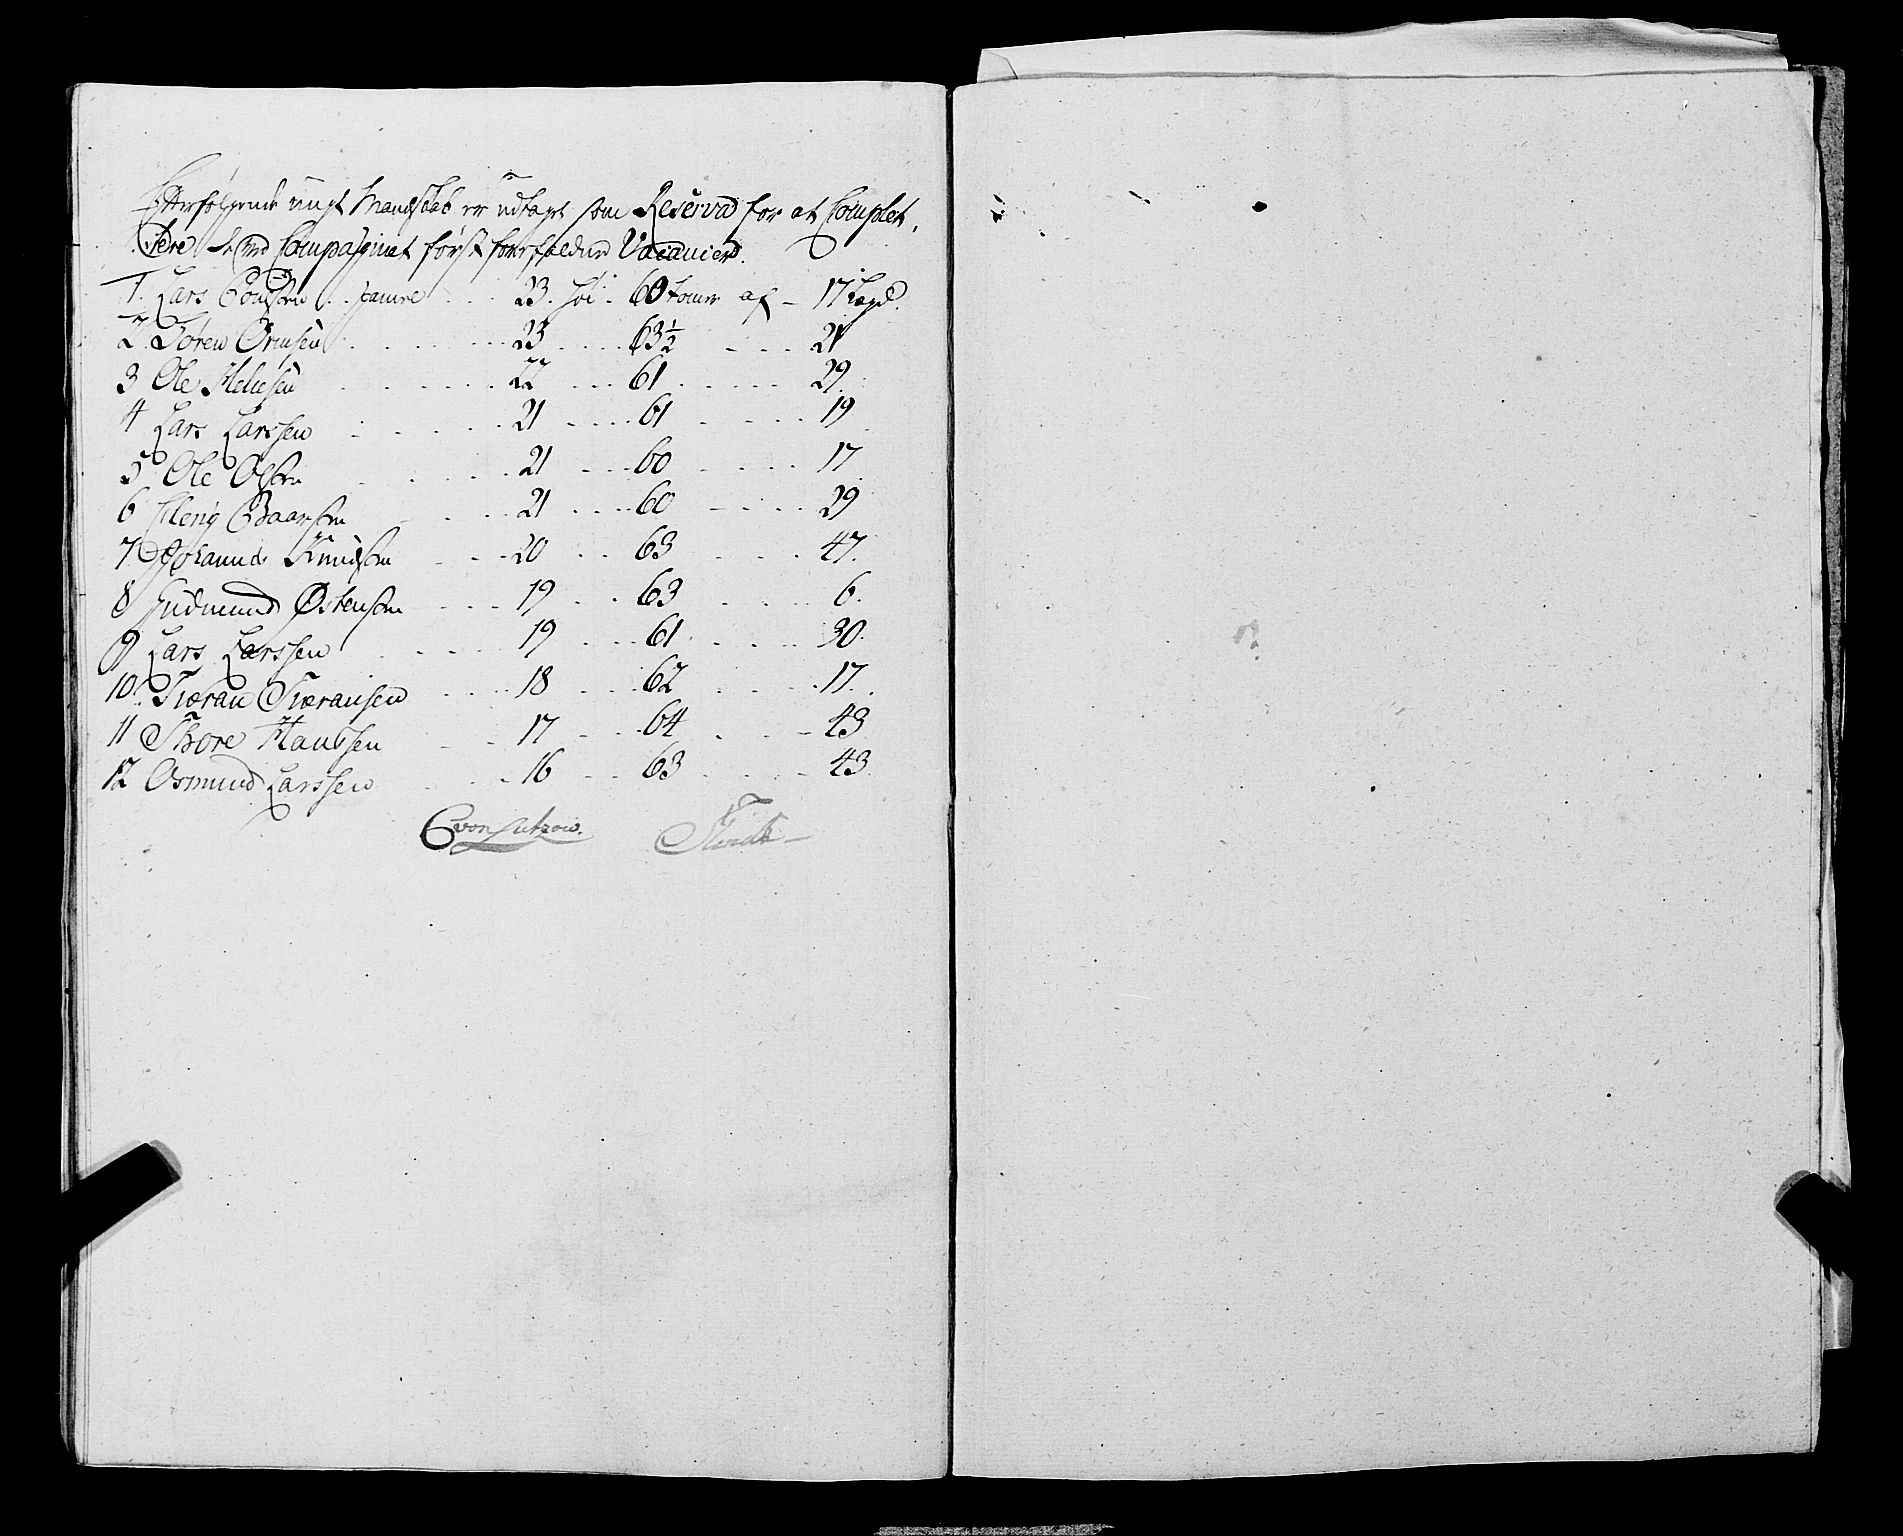 Efterfølgende ungt Mandskab er udtaget som Reserver for at Complet,
tere de ved Compagniet først forefaldende Vacancier.
1. Lars .. gamle ... 23. høi. 60 tomer af - 17 Lægd.
2. Søren Ormsen ... 23 ... 63½ ... 21
3 Ole ... 22 ... 61 ... 29.
4 Lars Larssen ... 21 ... 61 ... 19
5 Ole Olsen ... 21 ... 60 ... 17
6 Baarsen ... 21 ... 60 ... 29
7. Johannes Knudsen ... 20 .. 63 ... 47.
8 Gudmund Østensen ... 19 .. 63 ... 6.
9 Lars Larssen ... 19 ... 61 ... 30.
10. Tieran Tieransen ... 18 ... 62 ... 17.
11 Thore Hanssen ... 17 ... 64 ... 43
12 Osmund Larssen ... 16 ... 63 ... 43.
C von Lutzow.